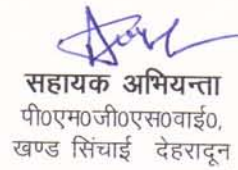 सहायक अभियन्ता
पी0एम0जी0एस0वाई0,
खण्ड सिंचाई देहरादून